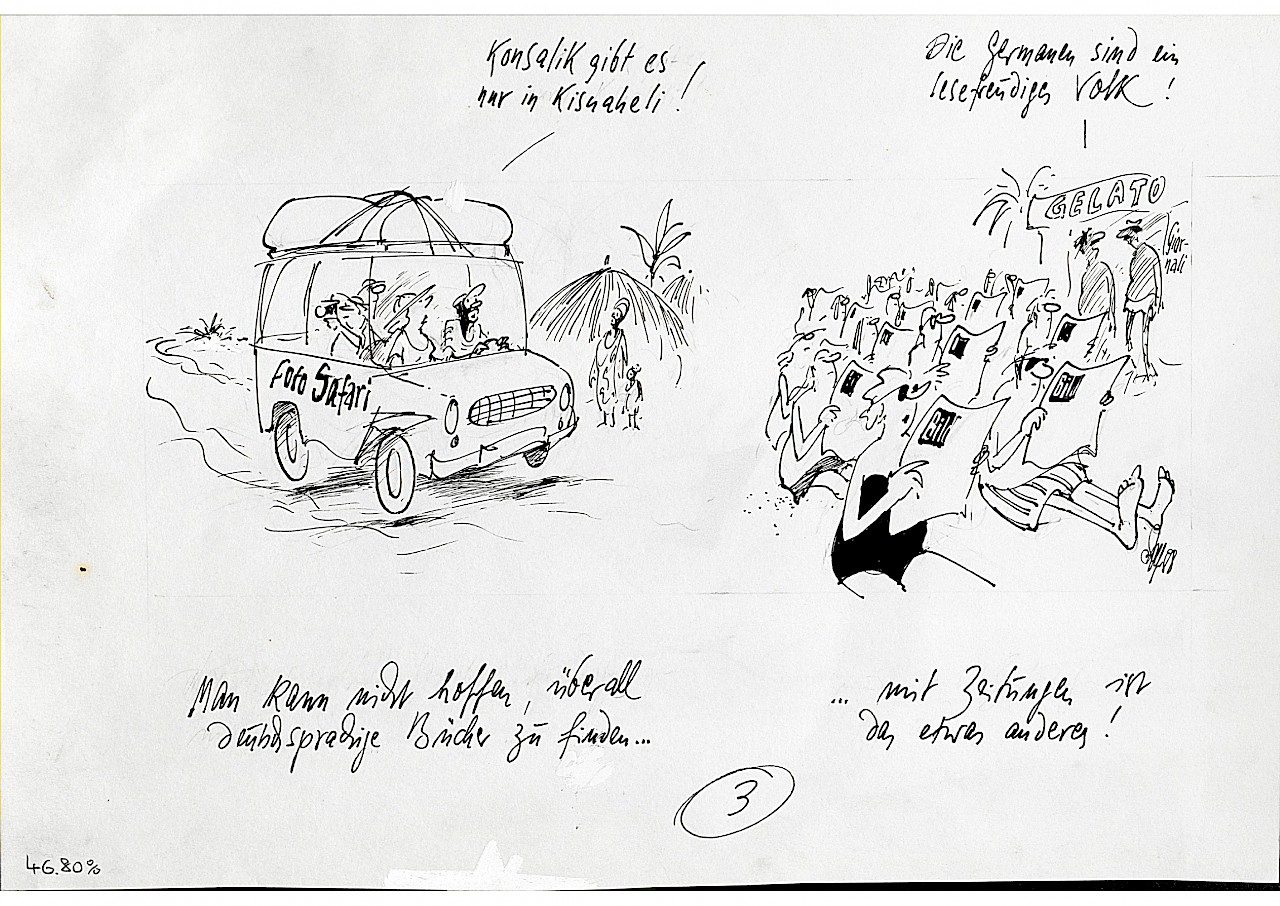 Konsalik gibt es
nur in Kisuaheli!
Die Germanen sind ein
lesefreudiges Volk!
GELATO
Gior-
nali
Foto Safari
Man kann nicht hoffen, überall
deutschsprachige Bücher zu finden...
... mit Zeitungen ist
das etwas anderes!
3
46.80%